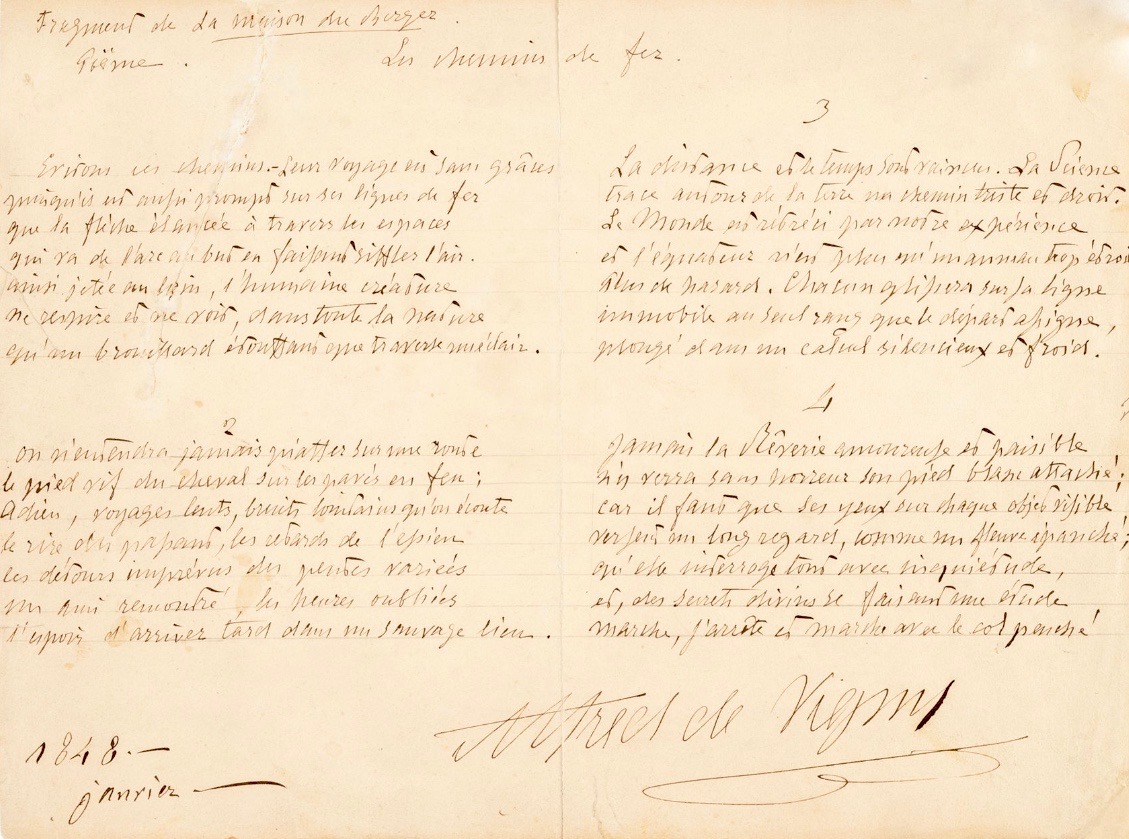 Fragment de La maison du Berger.
Poëme.
Les chemins de fer.
Evitons ces chemins. - Leur voyage est sans grâces
puisqu'il est aussi prompt sur ses lignes de fer
que la flèche élancée à travers les espaces
qui va de l'arc au but en faisant siffler l'air.
ainsi jetée au loin, l'humaine créature
ne respire et ne voit, dans toute la nature
qu'un brouillard étouffant que traverse un éclair.
2
on n'entendra jamais piaffer sur une route
le pied vif du cheval sur les pavés en feu ;
Adieu, voyages lents, bruits lointains qu'on écoute
le rire du passant, les retards de l'essieu
les détours imprévus des pentes variées
un ami rencontré, les heures oubliées
l'espoir d'arriver tard dans un sauvage lieu.
3
La distance et le temps sont vaincus. La Science
trace autour de la terre un chemin triste et droit.
Le Monde est rétréci par notre expérience
et l'équateur n'est plus qu'un anneau trop étroit
Plus de hasard. Chacun glissera sur sa ligne
immobile au seul rang que le départ assigne,
plongé dans un calcul silencieux et froid.
4
Jamais la Rêverie amoureuse et paisible
n'y verra sans horreur son pied blanc attaché ;
car il faut que ses yeux sur chaque objet visible
versent un long regard, comme un fleuve épanché ;
qu'elle interroge tout avec inquiétude,
et, des secrets divins se faisant une étude
marche, s'arrête et marche avec le col penché
Alfred de Vigny
1848. —
janvier —